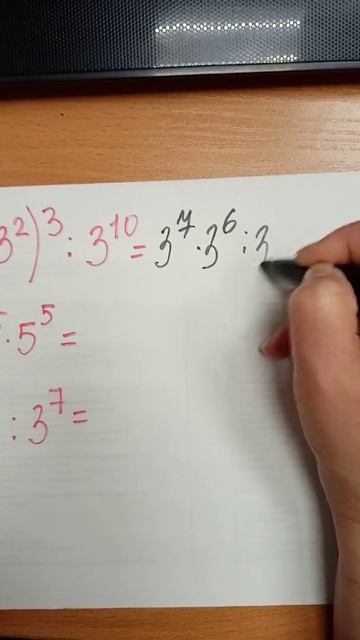 3²)³ : 3¹⁰ = 3⁷ · 3⁶ : 3
· 5⁵ =
: 3⁷ =